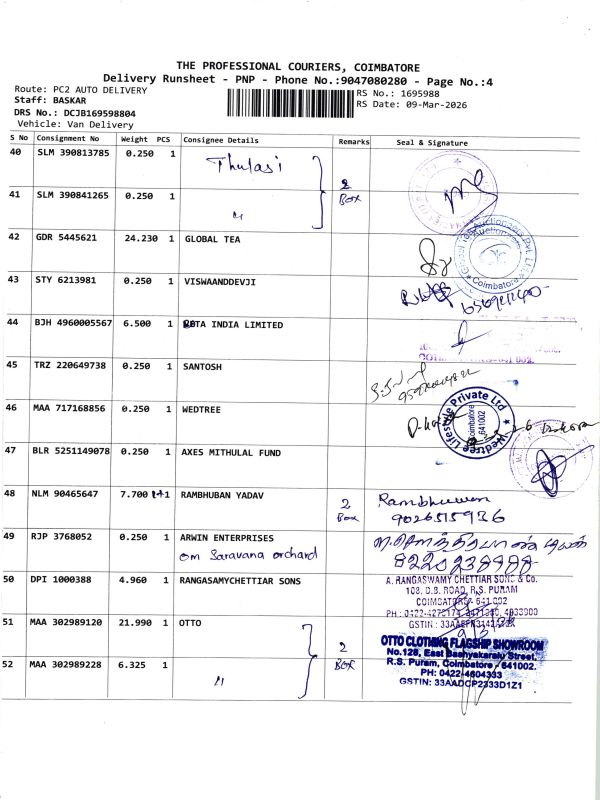 THE PROFESSIONAL COURIERS, COIMBATORE
Delivery Runsheet - PNP - Phone No.:9047080280 - Page No.:4
Route: PC2 AUTO DELIVERY
Staff: BASKAR
DRS No.: DCJB169598804
Vehicle: Van Delivery
RS No.: 1695988
RS Date: 09-Mar-2026
S No Consignment No Weight PCS Consignee Details Remarks Seal & Signature
40 SLM 390813785 0.250 1 Thulasi
2 Box
41 SLM 390841265 0.250 1 "
42 GDR 5445621 24.230 1 GLOBAL TEA
Coimbatore
43 STY 6213981 0.250 1 VISWAANDDEVJI
44 BJH 4960005567 6.500 1 BATA INDIA LIMITED
45 TRZ 220649738 0.250 1 SANTOSH
46 MAA 717168856 0.250 1 WEDTREE
Wedtree Lifestyle Private Ltd
Coimbatore
641002
47 BLR 5251149078 0.250 1 AXES MITHULAL FUND
48 NLM 90465647 7.700 1+1 RAMBHUBAN YADAV 2 Box Rambhuwan
9026515936
49 RJP 3768052 0.250 1 ARWIN ENTERPRISES
om Saravana orchard
8220238988
50 DPI 1000388 4.960 1 RANGASAMYCHETTIAR SONS
A. RANGASWAMY CHETTIAR SONS & Co.
108, D.B. ROAD, R.S. PURAM
COIMBATORE - 641 002
51 MAA 302989120 21.990 1 OTTO
2 Box
OTTO CLOTHING FLAGSHIP SHOWROOM
No.128, East Bashyakaralu Street,
R.S. Puram, Coimbatore - 641002.
PH: 0422-4604333
GSTIN: 33AADCP2333D1Z1
52 MAA 302989228 6.325 1 "